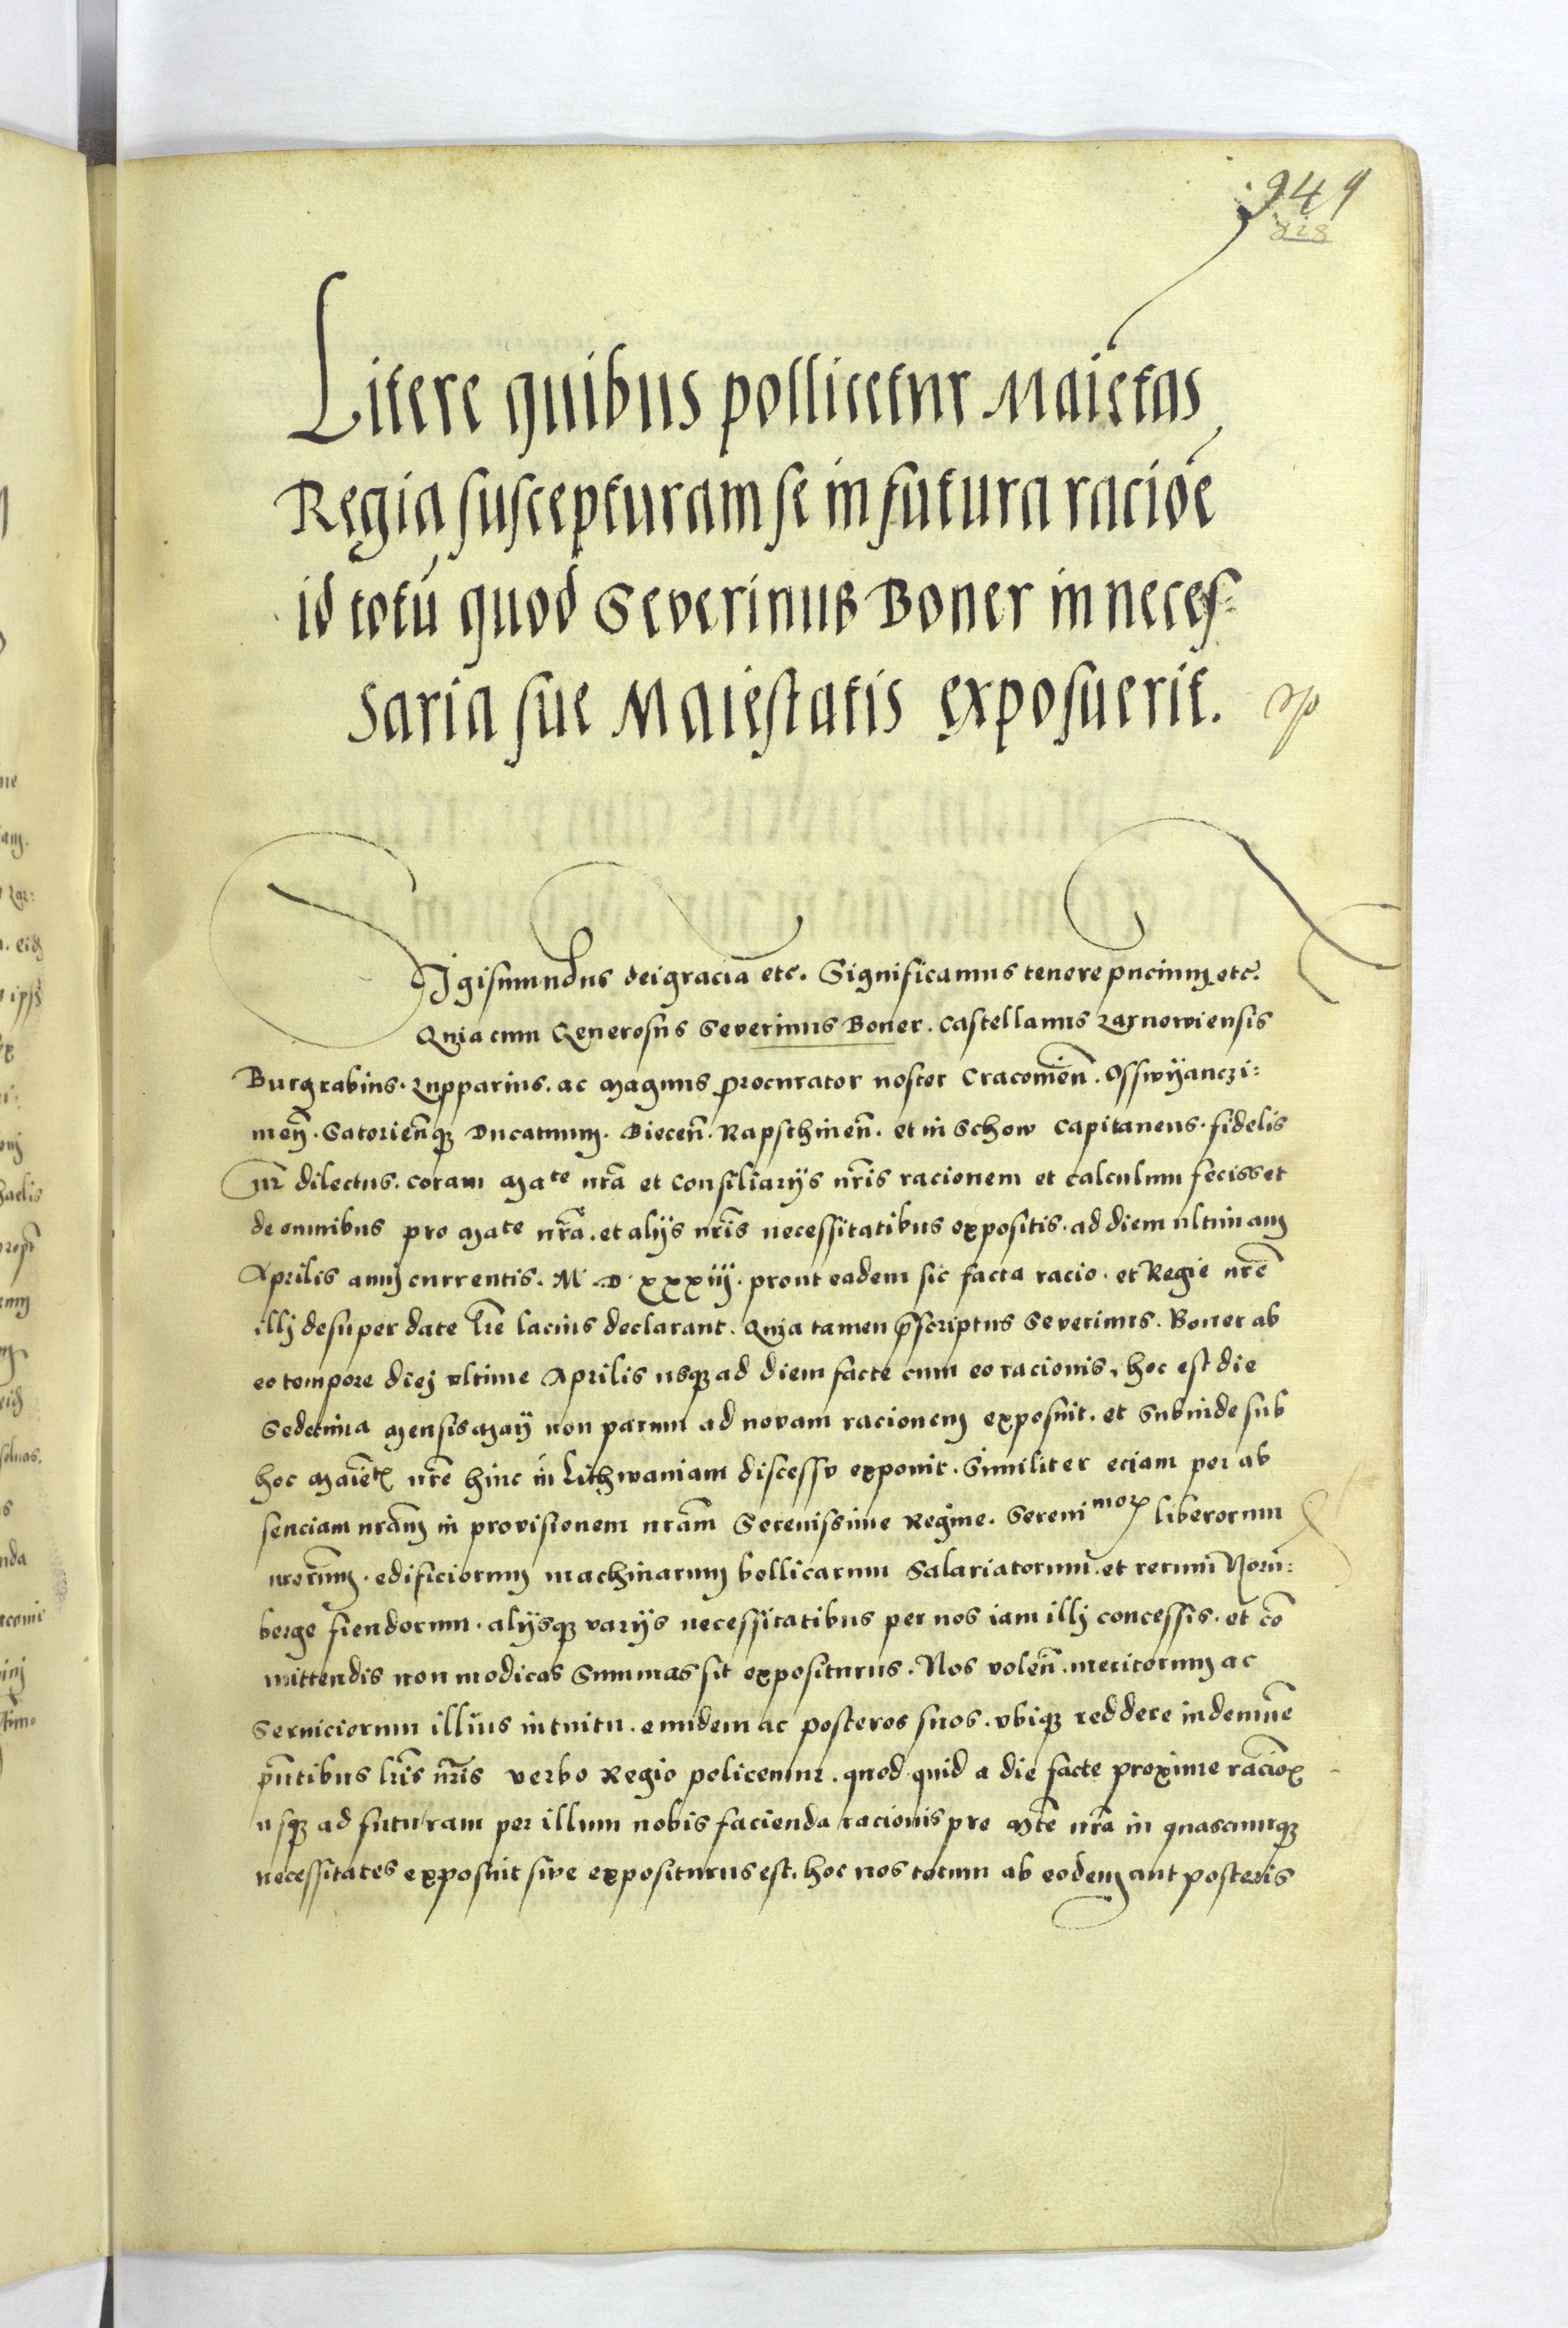 949
828
Litere quibus pollicetur Maietas
Regia suscepturam se in futura racioē
id totū quod Severinus Boner in neces:
saria sue Maiestatis exposuerit.
Sigismundus dei gracia etc. Significamus tenore pn̄cium etc.
Quia cum Generosus Severinus Boner. Castellanus Zarnowiensis
Burgrabius. Zupparius. ac Magnus procurator noster Cracouien̄. Osswyanczi:
men̄. Zatorien̄q3 Ducatuum. Biecen̄. Rapsthinen̄. et in Schow Capitaneus. fidelis
nr̄ dilectus. coram Mate nr̄a et Consiliarijs nr̄is racionem et calculum fecisset
de omnibus pro Mate nr̄a. et alijs nr̄is necessitatibus expositis. ad diem ultimam
Aprilis annj currentis. M. D. xxxiij. prout eadem sic facta racio. et Regie nr̄e
illj desuper date lr̄e lacius declarant. Quia tamen p̄scriptus Severinus. Boner ab
eo tempore diej vltime Aprilis usq3 ad diem facte cum eo racionis, hoc est die
Sedecima Mensis Maij non parum ad novam racionem exposuit. et Subinde sub
hoc Maiet̄ nr̄e hinc in Lithwaniam discessu exponit. Similiter eciam per ab
senciam nr̄am in provisionem nr̄am Serenissime Regine. Serenimor liberorum
nr̄orum. edificiorum machinarum bellicarum Salariatorum. et rerum Norin:
berge fiendorum. alijsq3 varijs necessitatibus per nos iam illj concessis. et cō
mittendis non modicas Summas sit expositurus. Nos volen̄. meritorum ac
Serviciorum illius intuitu. eundem ac posteros suos. vbiq3 reddere indemnē
pn̄tibus lr̄is nr̄is verbo Regio policemur. quod quid a die facte proxime racioni
usq3 ad futuram per illum nobis facienda racionis pro Mt̄e nr̄a in quascunq3
necessitates exposuit sive expositurus est. hoc nos totum ab eodem aut posteris